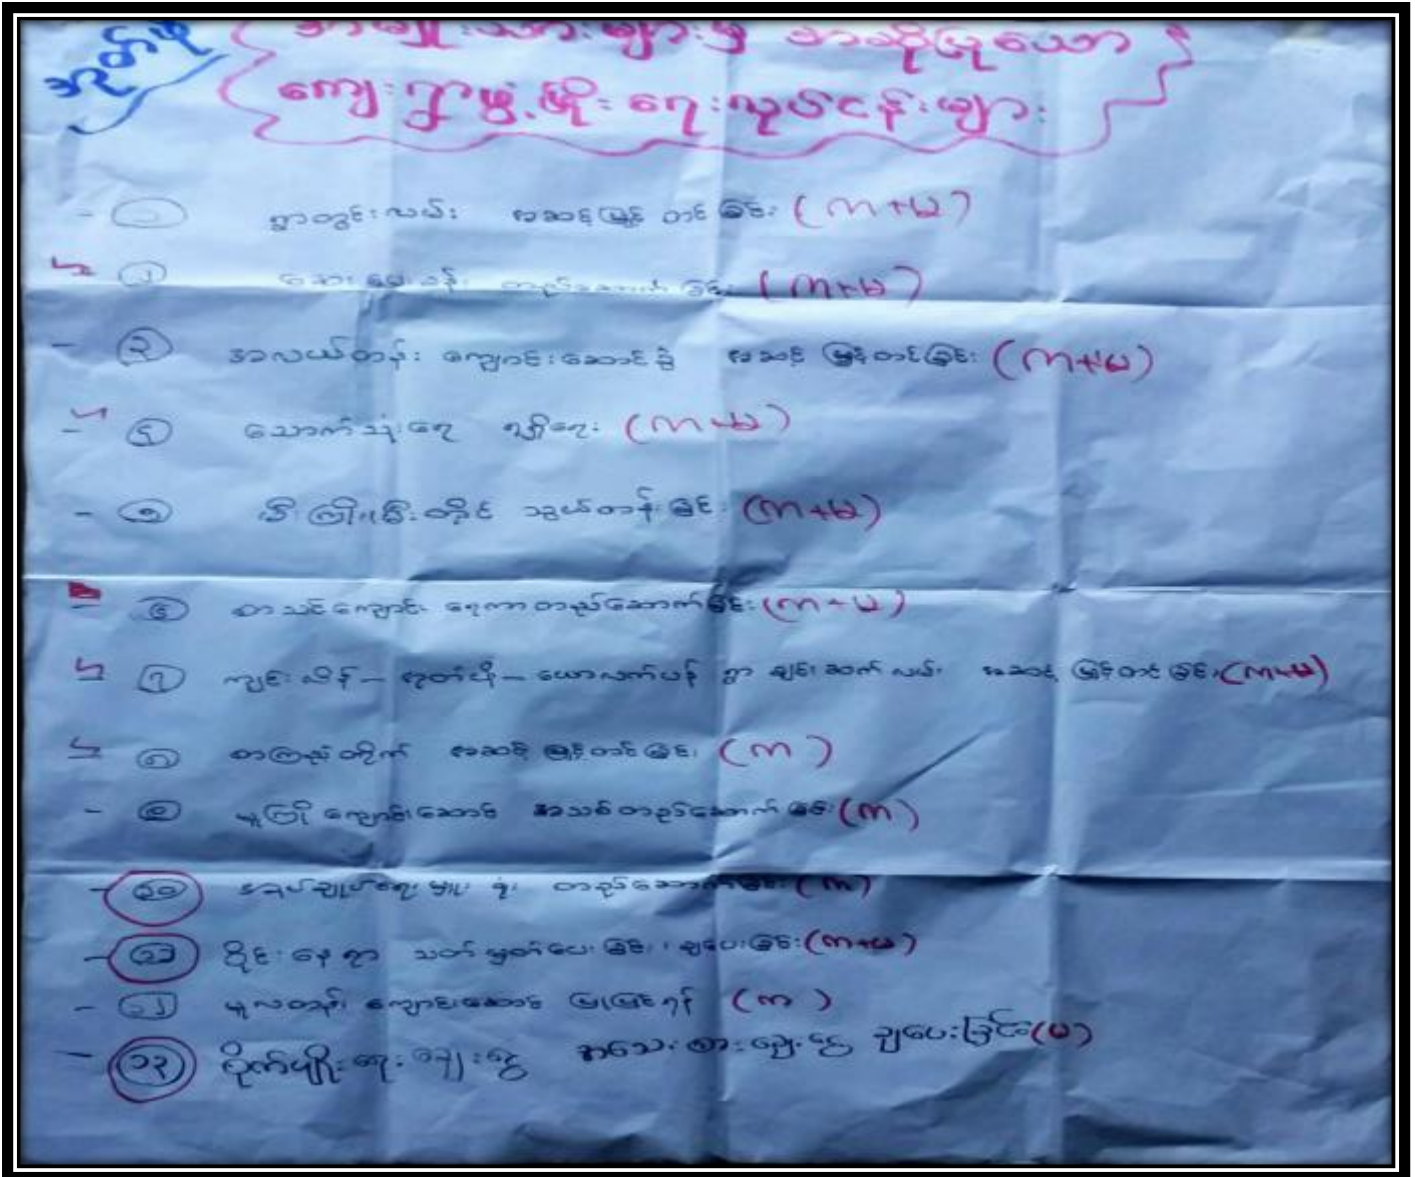 အမျိုးသားများမှ အဆိုပြုသော
ကျေးရွာဖွံ့ဖြိုးရေးလုပ်ငန်းများ
- ၁ ရွာတွင်းလမ်း အဆင့်မြှင့်တင်ခြင်း (က+မ)
၂ ဆေးပေးခန်း တည်ဆောက်ခြင်း (က+မ)
- ၃ အလယ်တန်း ကျောင်းဆောင်ခွဲ အဆင့်မြှင့်တင်ခြင်း (က+မ)
- ၄ သောက်သုံးရေ ရရှိရေး (က+မ)
- ၅ မီးကြိုး၊မီးတိုင် သွယ်တန်းခြင်း (က+မ)
- ၆ စာသင်ကျောင်း ရေကာတည်ဆောက်ခြင်း (က+မ)
၇ ရွာချင်းဆက်လမ်း အဆင့်မြှင့်တင်ခြင်း (က+မ)
၈ စာကြည့်တိုက် အဆင့်မြှင့်တင်ခြင်း (က)
- ၉ မူကြိုကျောင်းဆောင် အသစ်တည်ဆောက်ခြင်း (က)
- ၁၀ အုပ်ချုပ်ရေးမှူး ရုံး တည်ဆောက်ခြင်း (က)
- ၁၁ ဝိုင်းနေရာ သတ်မှတ်ပေးခြင်း၊ ချပေးခြင်း (က+မ)
- ၁၂ မူလတန်း ကျောင်းဆောင် ပြုပြင်ရန် (က)
- ၁၃ စိုက်ပျိုးရေးချေးငွေ အသေးစားချေးငွေ ချပေးခြင်း (မ)